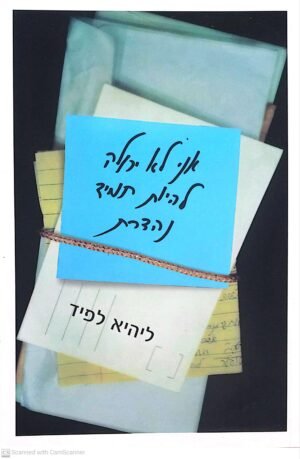 אני לא יכולה
להיות תמיד
נהדרת
ליהיא לפיד
CS Scanned with CamScanner